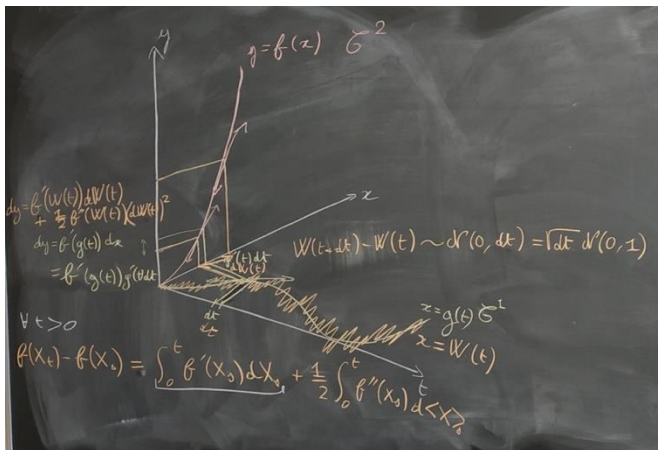 y
y = f(x) C²
x
dy = f'(W(t)) dW(t)
+ ½ f''(W(t)) (dW(t))²
dy = f'(g(t)) dx
= f'(g(t)) g'(t) dt
g'(t) dt
dW(t)
W(t+dt) - W(t) ~ N(0, dt) = √dt N(0,1)
dt
x = g(t) C¹
x = W(t)
t
∀ t > 0
f(X_t) - f(X_0) = ∫_0^t f'(X_s) dX_s + ½ ∫_0^t f''(X_s) d<X>_s